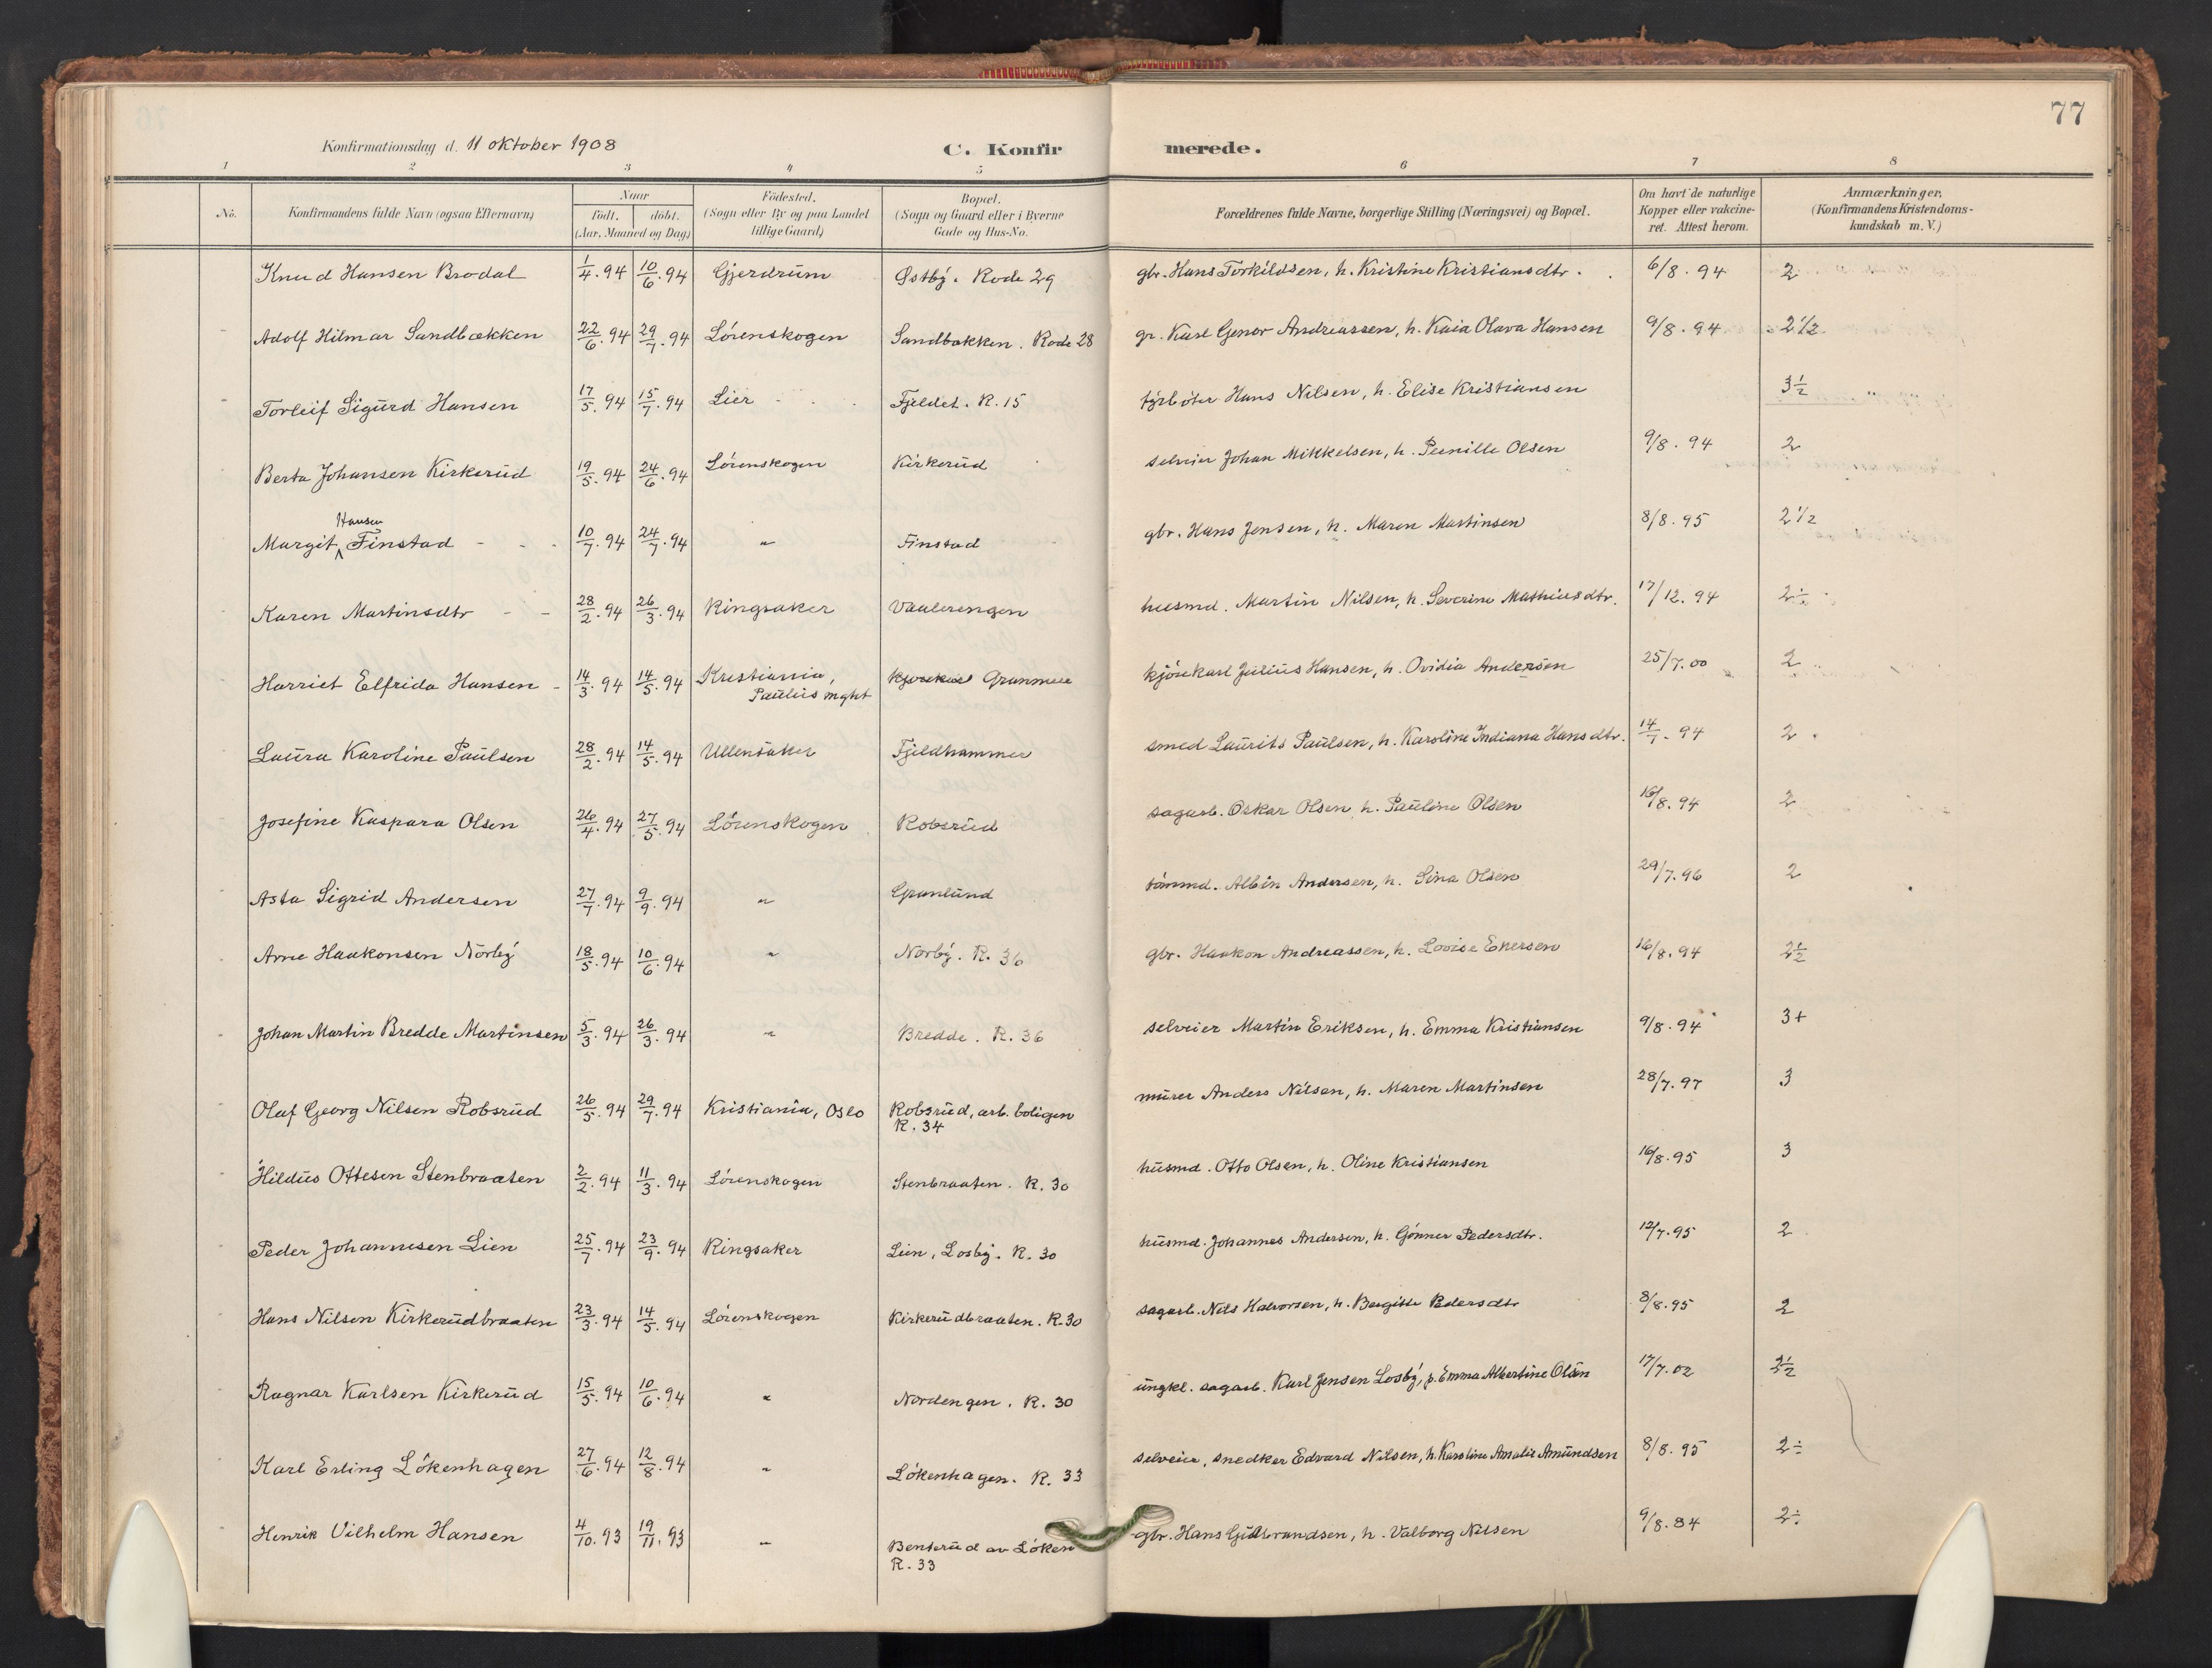 77
Konfirmationsdag d. 11 oktober 1908
C. Konfir merede.
1 2 3 4 5 6 7 8
No. Konfirmandens fulde Navn (ogsaa Efternavn) Naar født. døbt. (Aar, Maaned og Dag) Fødested. (Sogn eller By og paa Landet tillige Gaard) Bopæl. (Sogn og Gaard eller i Byerne Gade og Hus-No. Forældrenes fulde Navne, borgerlige Stilling (Næringsvei) og Bopæl. Om havt de naturlige Kopper eller vakcineret. Attest herom. Anmærkninger. (Konfirmandens Kristendomskundskab m. V.)
Knud Hansen Brodal 1/4.94 10/6.94 Gjerdrum Østby. Rode 29 gbr. Hans Torkildsen, h. Kristine Kristiansdtr. 6/8.94 2
Adolf Hilmar Sandbækken 22/6.94 29/7.94 Lörenskogen Sandbækken. Rode 28 gr. Karl Genor Andreassen, h. Kaia Olava Hansen 9/8.94 2 1/2
Torleif Sigurd Hansen 17/5.94 15/7.94 Lier Fjeldet. R. 15 fyrböter Hans Nilsen, h. Elise Kristiansen 3 1/2
Berta Johansen Kirkerud 19/5.94 24/6.94 Lörenskogen Kirkerud selveier Johan Mikkelsen, h. Pernille Olsen 9/8.94 2
Margit Hansen Finstad 10/7.94 24/7.94 " Finstad gbr. Hans Jensen, h. Maren Martinsen 8/8.95 2 1/2
Karen Martinsdtr 28/2.94 26/3.94 Ringsaker Vaalerengen husmd. Martin Nilsen, h. Severine Mathiasdtr. 17/12.94 2÷
Harriet Elfrida Hansen 14/3.94 14/5.94 Kristiania, Paulus mght Granmere kjörekarl Julius Hansen, h. Ovidia Andersen 25/7.00 2
Laura Karoline Paulsen 28/2.94 14/5.94 Ullensaker Fjeldhammer smed Laurits Paulsen, h. Karoline Indiana Hansdtr. 14/7.94 2
Josefine Kaspara Olsen 26/4.94 27/5.94 Lörenskogen Robsrud sagarb. Oskar Olsen, h. Pauline Olsen 16/8.94 2
Asta Sigrid Andersen 27/7.94 9/9.94 " Granlund tömmd. Albin Andersen, h. Lina Olsen 29/7.96 2
Arne Haakonsen Norby 18/5.94 10/6.94 " Norby. R. 36 gbr. Haakon Andreassen, h. Lovise Enersen 16/8.94 2 1/2
Johan Martin Bredde Martinsen 5/3.94 26/3.94 " Bredde. R. 36 selveier Martin Eriksen, h. Emma Kristiansen 9/8.94 3+
Olaf Georg Nilsen Robsrud 26/5.94 29/7.94 Kristiania, Oslo Robsrud, arb. boligen R. 34 murer Anders Nilsen, h. Maren Martinsen 28/7.97 3
Hildus Ottesen Stenbraaten 2/2.94 11/3.94 Lörenskogen Stenbraaten. R. 30 husmd. Otto Olsen, h. Oline Kristiansen 16/8.95 3
Peder Johannesen Lien 25/7.94 23/9.94 Ringsaker Lien, Losby. R. 30 husmd. Johannes Andersen, h. Gönner Pedersdtr. 12/7.95 2
Hans Nilsen Kirkerudbraaten 23/3.94 14/5.94 Lörenskogen Kirkerudbraaten. R. 30 sagarb. Nils Halvorsen, h. Bergitte Pedersdtr 8/8.95 2
Ragnar Karlsen Kirkerud 15/5.94 10/6.94 " Nordengen. R. 30 ungkl. sagarb. Karl Jensen Losby, p. Emma Albertine Olsen 17/7.02 2 1/2
Karl Erling Lökenhagen 27/6.94 12/8.94 " Lökenhagen. R. 33 selveier, snedker Edvard Nilsen, h. Karoline Amalie Amundsen 8/8.95 2÷
Henrik Vilhelm Hansen 4/10.93 19/11.93 " Benterud av Löken R. 33 gbr. Hans Gulbrandsen, h. Valborg Nilsen 9/8.94 2÷